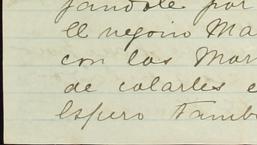 jandole por
el negocio Ma
con las Mar
de colarles e
Espero Tamb